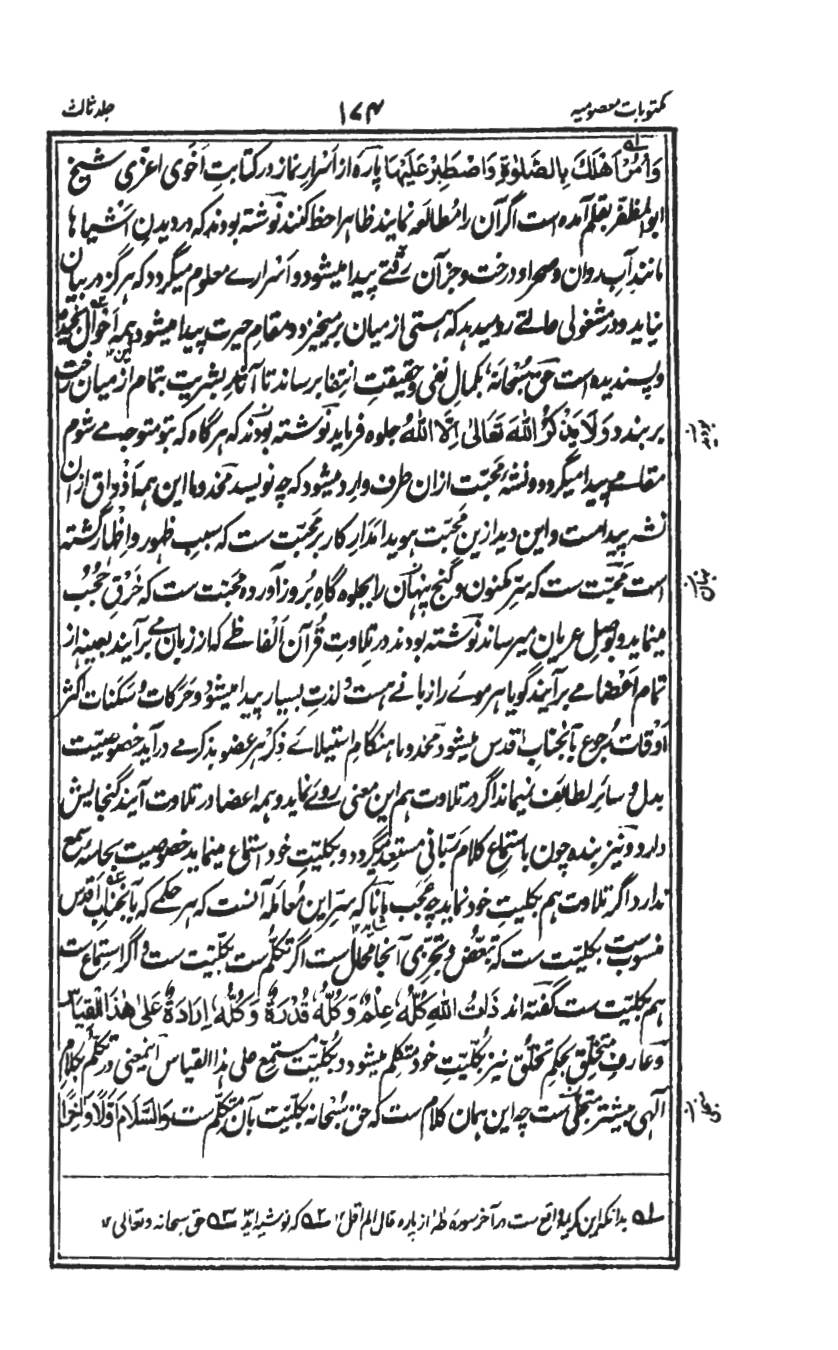 مکتوبات معصومیه ۱۷۴ جلد ثالث
وَأْمُرْ اَهْلَكَ بِالصَّلٰوةِ وَاصْطَبِرْ عَلَيْهَا پاره از اسرارِ نماز در کتابتِ اَخوی اعزّی شیخ
ابوالمظفر بقلم آمده است اگر آن را مُطالعه نمایند ظاهرا حظ کنند نوشته بودند که در دیدنِ اَشیا ها
مانند آبِ روان و صحرا و درخت و جز آن رقّتے پیدا میشود و اَسرارے معلوم میگردد که هرگز در بیان
نیاید و در مشغولی حالتے رومیدهد که هستی از میان برمیخیزد و مقامِ حیرت پیدا میشود همه اَحوال
و پسندیده است حق سُبْحَانَهٗ بکمالِ نفی و حقیقتِ اِنتفا برساند تا آثارِ بشریت بتمام از میان رخت
بربندد وَلَا يَذْكُرُ اللهَ تَعَالىٰ اِلَّا اللهُ جلوه فرماید نوشته بودند که هرگاه که بتو متوجه مے شوم
مقامے پیدا میگردد و نشهٔ محبّت ازان طرف وارد میشود که چه نویسد مخدوما این همه اَذواق ازان
نشه پیداست و این دید ازین محبّت هویدا مَدارِ کار بر محبّت ست که سببِ ظهور و اِظهار گشته
است محبّت ست که سِرّ مکنون و گنجِ پنهان را بجلوه گاهِ بُروز آورده محبّت ست که خَرْقِ حُجُب
مینماید و بوصلِ عریان میرساند نوشته بودند در تِلاوتِ قُرآن اَلْفاظے که از زبان مے برآیند بعینه از
تمام اَعْضا مے برآیند گویا هر موئے را زبانے هست و لذتِ بسیار پیدا میشود و حَرَکات و سَکَنات اکثر
اَوْقات رُجوع بآنجنابِ اقدس میشود مخدوما هنگامِ استیلائے ذِکْر هر عضو بذکر مے درآید خصوصیّت
بدل و سائرِ لطائف نمیماند اگر در تلاوت هم این معنی روئے نماید و همه اعضا در تلاوت آیند گنجایش
دارد و نیز بنده چون باستماعِ کلامِ ربّانی مستعد میگردد و بکلیّتِ خود استماع مینماید خصوصیت بحاسهٔ سمع
ندارد اگر تلاوت هم بکلیتِ خود نماید چه عجب مانا که سرّ این مُعامله آنست که هر حکمے که بآنجنابِ اقدس
منسوبست بکلیّت ست که تبعّض و تجزّی آنجا محال ست اگر تکلّم ست بکلیّت ست و اگر استماع ست
هم بکلیّت ست گفته اند ذَاتُ اللهِ كُلُّهٗ عِلْمٌ وَكُلُّهٗ قُدْرَةٌ وَكُلُّهٗ اِرَادَةٌ عَلىٰ هٰذَا الْقِيَاسِ
و عارفِ متخلّق بحکمِ تخلّق نیز بکُلیّتِ خود متکلم میشود و بکُلیّت مستمع علی هذا القیاس اینمعنی در تکلّم بکلامِ
الٰهی بیشتر متجلّی ست چه این همان کلام ست که حق سُبْحانه بکلیّت بآن متکلّم ست وَالسَّلَامُ اَوَّلًا وَّاٰخِرًا
ـه۱ بدانکه این کریمه واقع ست در آخر سورهٔ طه از پاره قال الم اقل ۱۲ ـه۲ که نوشته اید ـه۳ حق سبحانه و تعالی ۱۲